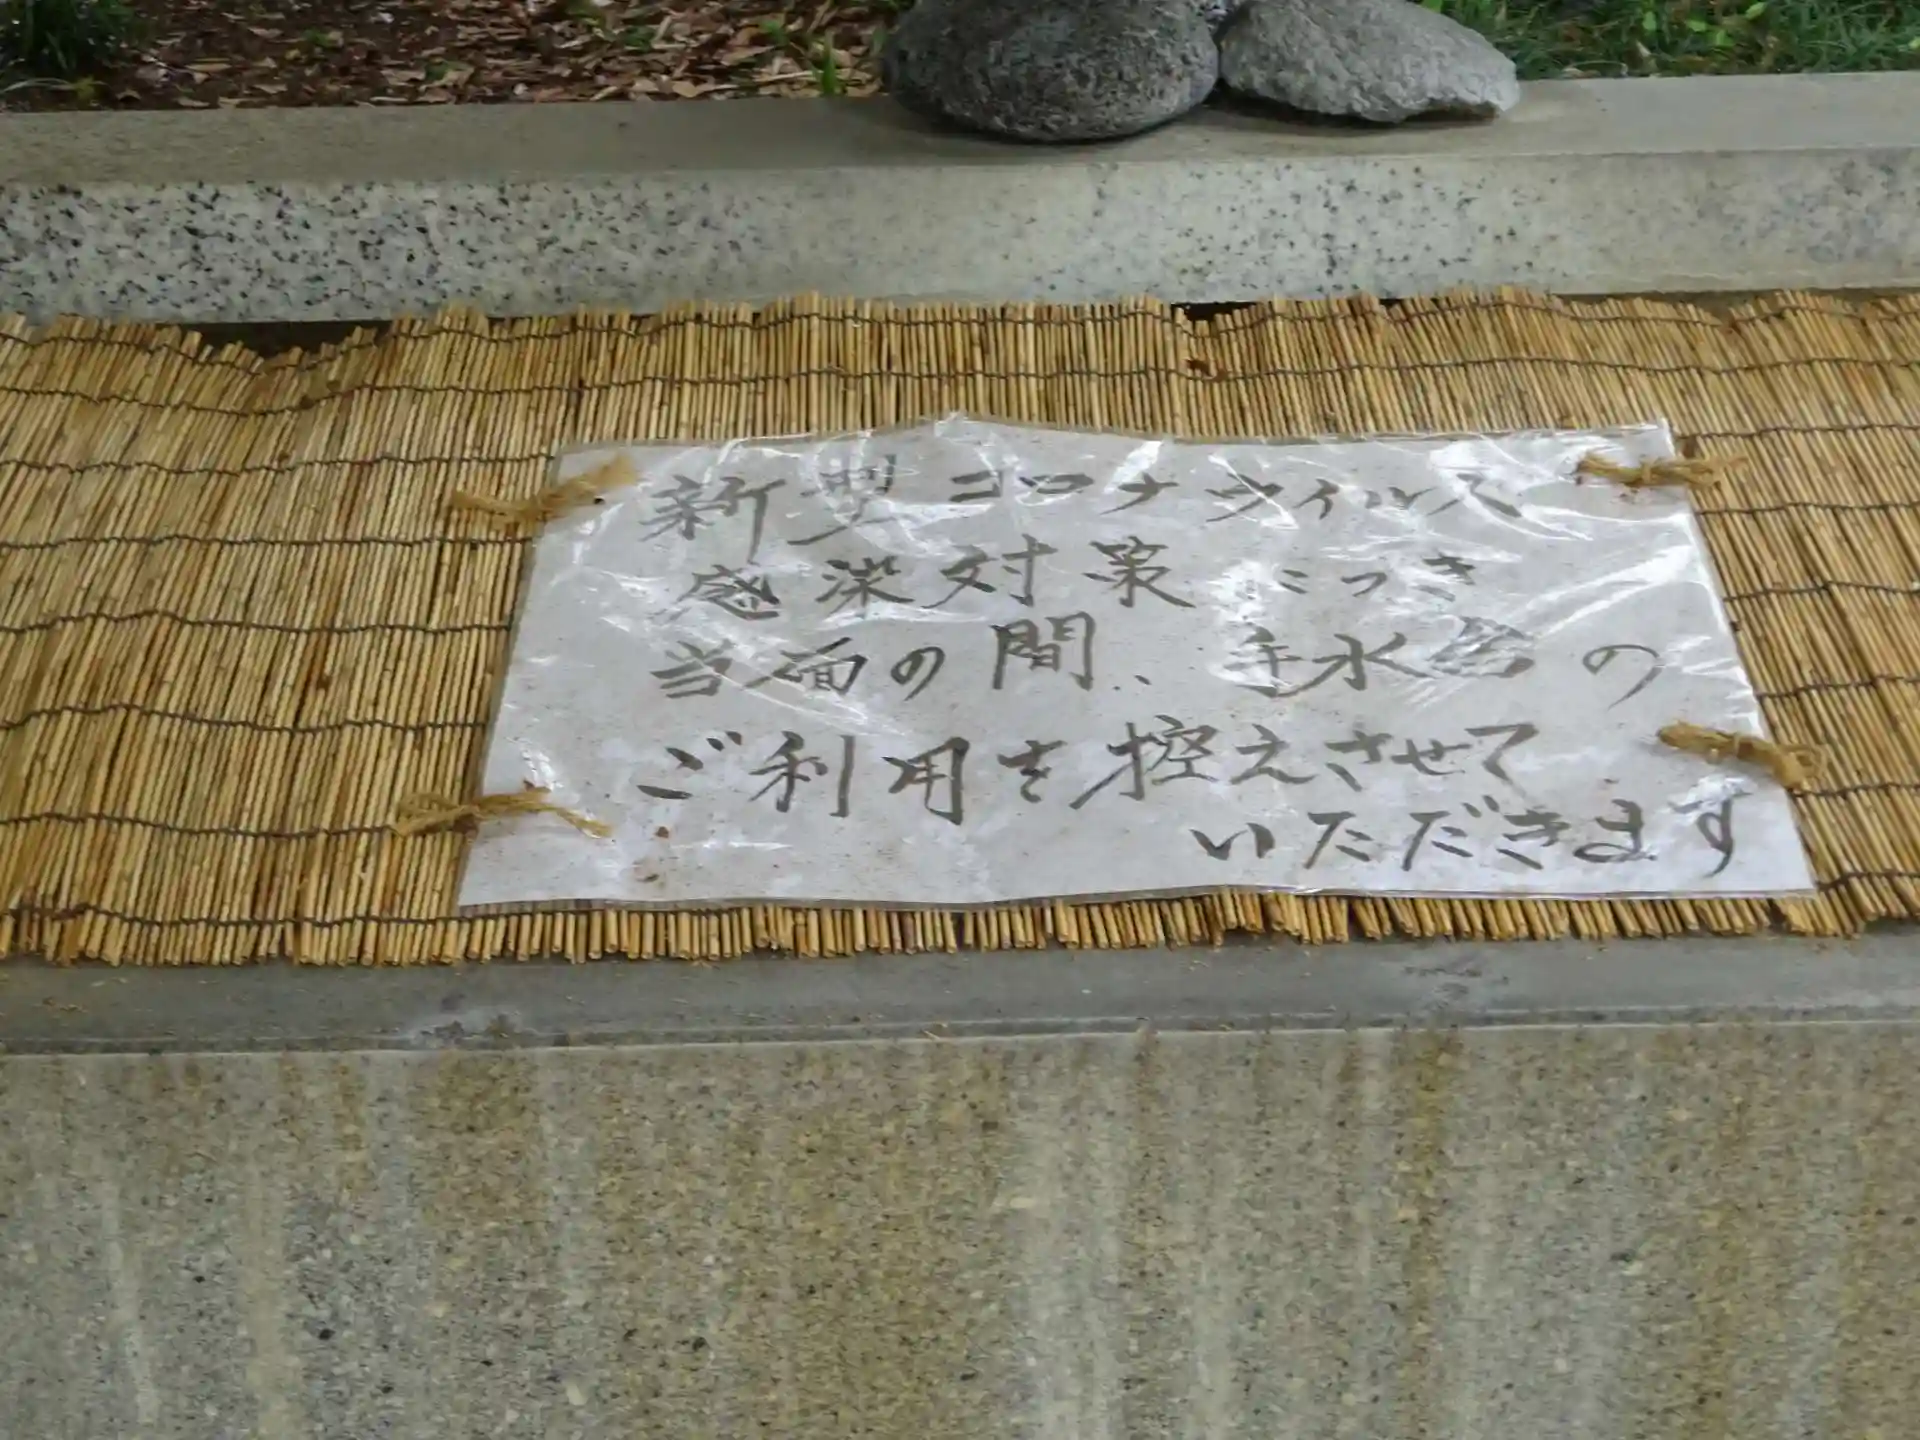 新型コロナウイルス
感染対策につき
当面の間、手水台の
ご利用を控えさせて
いただきます